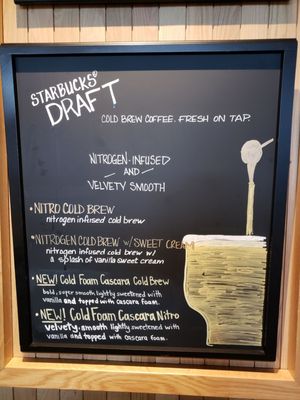 STARBUCKS®
DRAFT
COLD BREW COFFEE. FRESH ON TAP.
NITROGEN-INFUSED
— AND —
VELVETY SMOOTH
• NITRO COLD BREW
nitrogen infused cold brew
• NITROGEN COLD BREW w/ SWEET CREAM
nitrogen infused cold brew w/
a splash of vanilla sweet cream
• NEW! Cold Foam Cascara Cold Brew
bold, super smooth lightly sweetened with
vanilla and topped with cascara foam.
• NEW! Cold Foam Cascara Nitro
velvety, smooth lightly sweetened with
vanilla and topped with cascara foam.